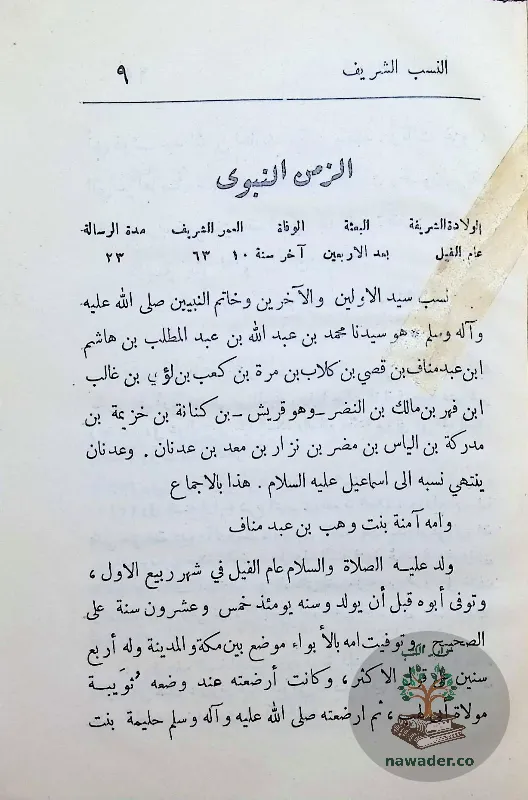 النسب الشريف ٩
الزمن النبوى
الولادة الشريفة البعثة الوفاة العمر الشريف مدة الرسالة
عام الفيل بعد الاربعين آخر سنة ١٠ ٦٣ ٢٣
نسب سيد الاولين والآخرين وخاتم النبيين صلى الله عليه
وآله وسلم هو سيدنا محمد بن عبد الله بن عبد المطلب بن هاشم
ابن عبد مناف بن قصي بن كلاب بن مرة بن كعب بن لؤي بن غالب
ابن فهر بن مالك بن النضر – وهو قريش – بن كنانة بن خزيمة بن
مدركة بن الياس بن مضر بن نزار بن معد بن عدنان . وعدنان
ينتهي نسبه الى اسماعيل عليه السلام . هذا بالاجماع
وامه آمنة بنت وهب بن عبد مناف
ولد عليه الصلاة والسلام عام الفيل في شهر ربيع الاول ،
وتوفى أبوه قبل أن يولد وسنه يومئذ خمس وعشرون سنة على
الصحيح وتوفيت امه بالأبواء موضع بين مكة والمدينة وله أربع
سنين الاكثر ، وكانت أرضعته عند وضعه ثويبة
مولاة ، ثم ارضعته صلى الله عليه وآله وسلم حليمة بنت
nawader.co